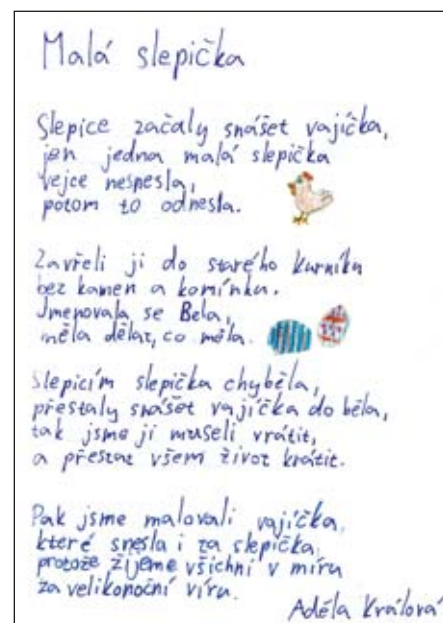 Malá slepička
Slepice začaly snášet vajíčka,
jen jedna malá slepička
vejce nesnesla,
potom to odnesla.
Zavřeli ji do starého kurníku
bez kamen a komínka.
Jmenovala se Bela,
měla dělat, co měla.
Slepicím slepička chyběla,
přestaly snášet vajíčka do běla,
tak jsme ji museli vrátit,
a přestat všem život krátit.
Pak jsme malovali vajíčka,
které snesla i za slepička,
protože žijeme všichni v míru
za velikonoční víru.
Adéla Králová